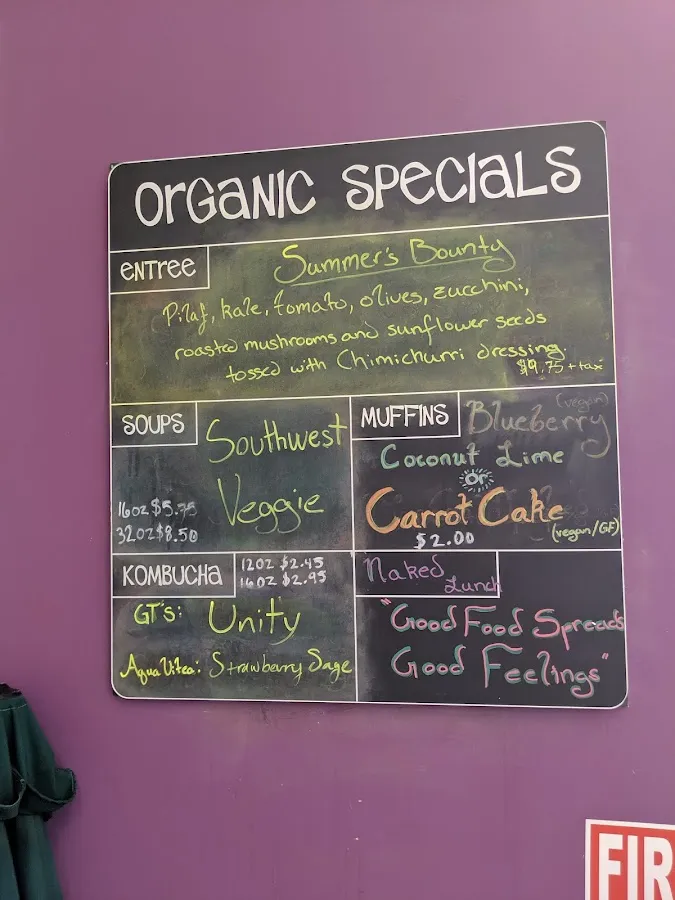 ORGANIC SPECIALS
ENTREE
Summer's Bounty
Pilaf, kale, tomato, olives, zucchini,
roasted mushrooms and sunflower seeds
tossed with Chimichurri dressing
$9.75 + tax
SOUPS
Southwest
Veggie
16oz $5.75
32oz $8.50
MUFFINS
(vegan)
Blueberry
Coconut Lime
or
Carrot Cake
$2.00
(vegan/GF)
KOMBUCHA
12oz $2.45
16oz $2.95
GT's: Unity
Aqua Vitea: Strawberry Sage
Naked
Lunch
"Good Food Spreads
Good Feelings"
FIR